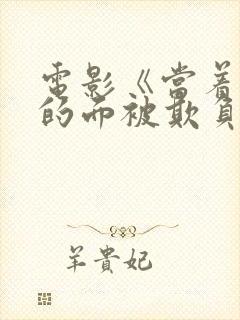 電影《當着
的而被欺負
羊貴妃